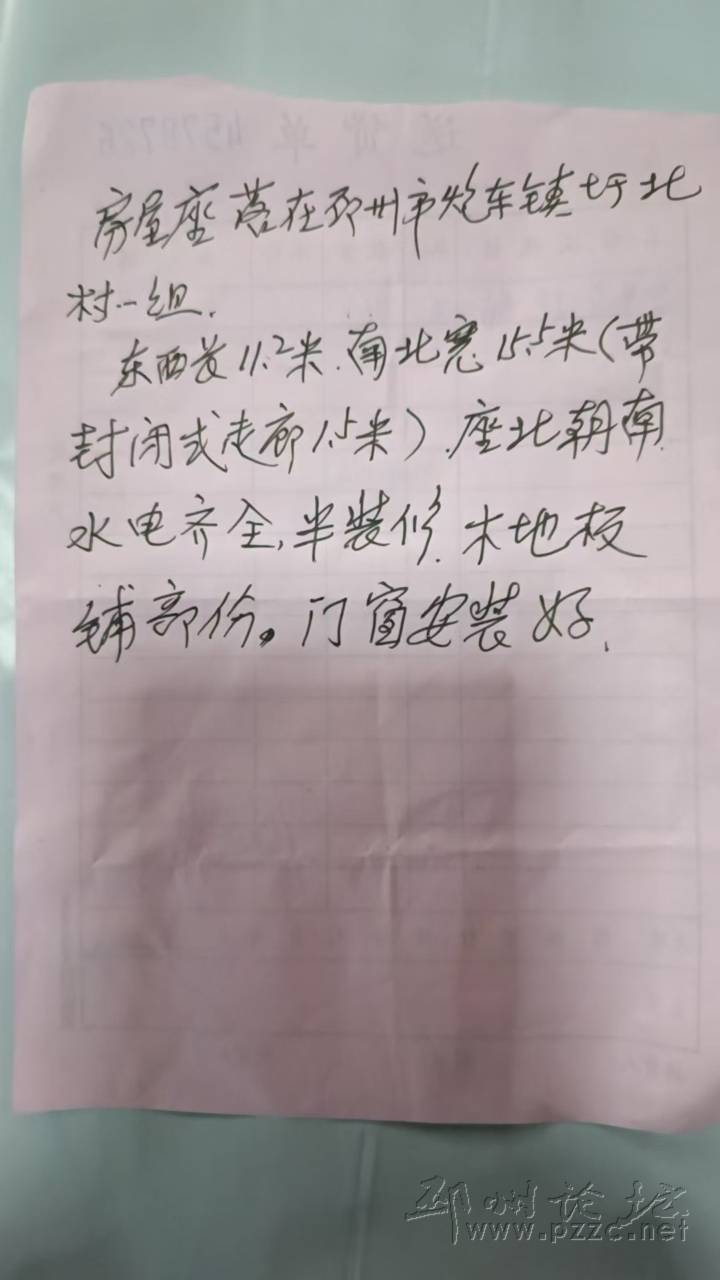 送货单 4578726
房屋座落在邳州市炮车镇圩北
村一组.
东西长11.2米.南北宽15.5米(带
封闭式走廊1.5米).座北朝南.
水电齐全,半装修.木地板
铺部份。门窗安装好.
邳州论坛
www.pzzc.net